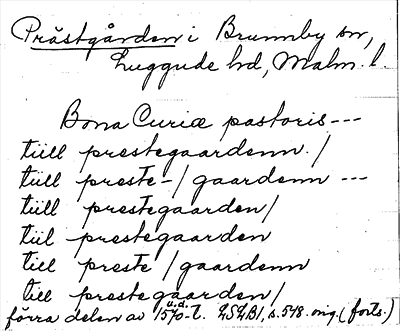 Prästgården i Brunnby sn,
Luggude hd, Malm. l.
Bona Curiæ pastoris ---
tiill prestegaardenn /
tiill preste-/gaardenn ---
tiill prestegaarden/
tiil prestegaarden
till preste/gaardenn
till prestegaarden/
u.d.
förra delen av 1570-t. LSLB1, s. 548. orig. (forts.)